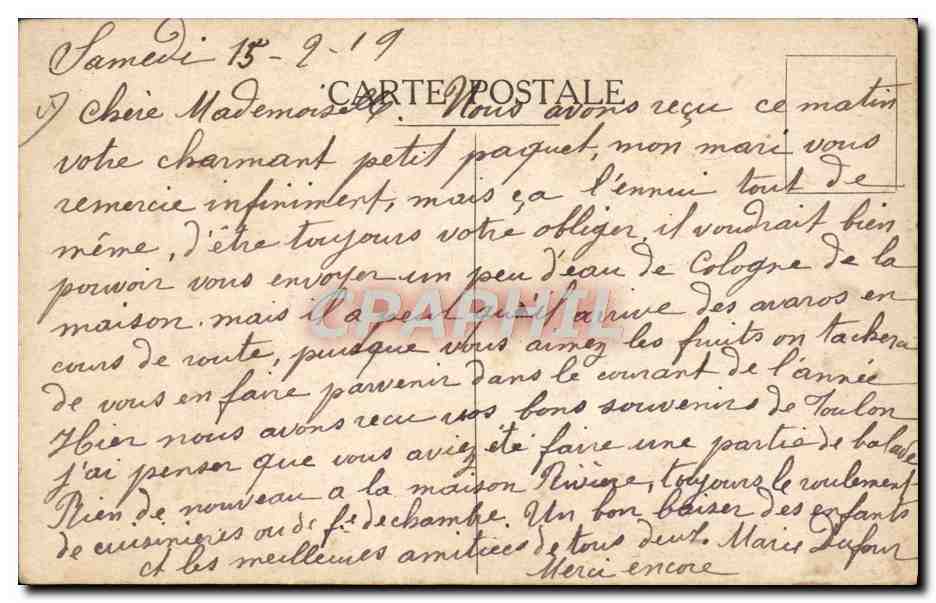 Samedi 15-9-19
CARTE POSTALE
Chère Mademoiselle. Nous avons reçu ce matin
votre charmant petit paquet, mon mari vous
remercie infiniment, mais ça l'ennui tout de
même, d'être toujours votre obliger, il voudrait bien
pouvoir vous envoyer un peu d'eau de Cologne de la
maison. mais il a peur qu'il arrive des avaros en
cours de route, puisque vous aimez les fruits on tachera
de vous en faire parvenir dans le courant de l'année
Hier nous avons reçu vos bons souvenirs de Toulon
j'ai penser que vous aviez été faire une partie de balade
Rien de nouveau a la maison Rivière, toujours le roulement
de cuisinières ou de f. de chambre. Un bon baiser des enfants
et les meilleures amitiées de tous deux. Marie Dufour
Merci encore
CPAPHIL